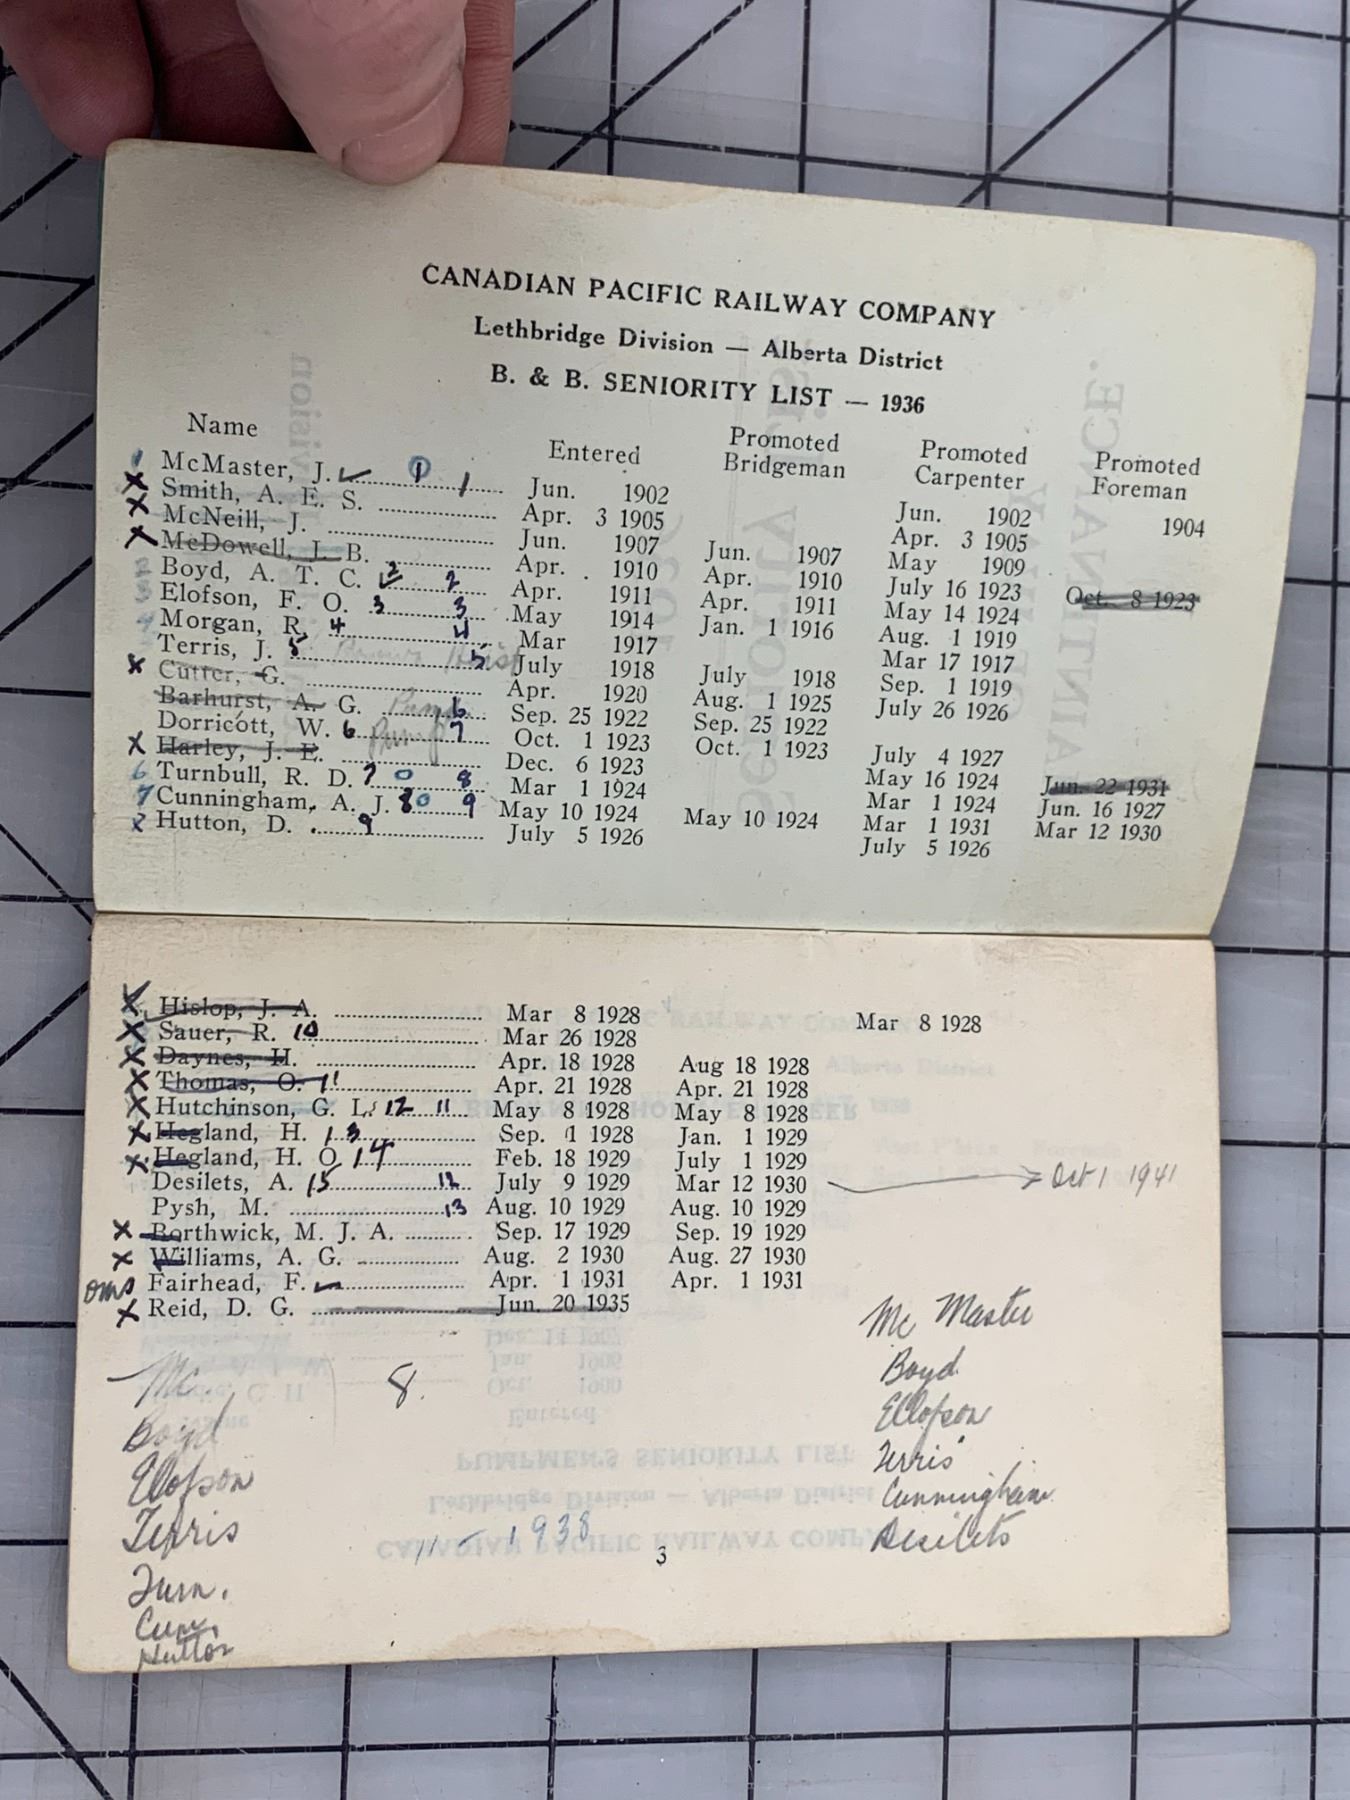 CANADIAN PACIFIC RAILWAY COMPANY
Lethbridge Division — Alberta District
B. & B. SENIORITY LIST — 1936
Name Entered Promoted Bridgeman Promoted Carpenter Promoted Foreman
1 McMaster, J. ✓ 1 1 Jun. 1902 Jun. 1902 1904
X Smith, A. E. S. Apr. 3 1905 Apr. 3 1905
X McNeill, J. Jun. 1907 Jun. 1907 May 1909
X McDowell, J. B. Apr. 1910 Apr. 1910 July 16 1923 Oct. 8 1923
2 Boyd, A. T. C. ✓ 2 2 Apr. 1911 Apr. 1911 May 14 1924
3 Elofson, F. O. 3 3 May 1914 Jan. 1 1916 Aug. 1 1919
4 Morgan, R. 4 4 Mar 1917 Mar 17 1917
Terris, J. 5 5 July 1918 July 1918 Sep. 1 1919
X Cutter, G. Apr. 1920 Aug. 1 1925 July 26 1926
Barhurst, A. G. Pump 6 Sep. 25 1922 Sep. 25 1922
Dorricott, W. 6 Pump 7 Oct. 1 1923 Oct. 1 1923 July 4 1927
X Harley, J. E. Dec. 6 1923 May 16 1924 Jun. 22 1931
6 Turnbull, R. D. 7 0 8 Mar 1 1924 Mar 1 1924 Jun. 16 1927
7 Cunningham, A. J. 8 0 9 May 10 1924 May 10 1924 Mar 1 1931 Mar 12 1930
Hutton, D. 9 July 5 1926 July 5 1926
X Hislop, J. A. Mar 8 1928 Mar 8 1928
X Sauer, R. 10 Mar 26 1928
X Daynes, H. Apr. 18 1928 Aug 18 1928
X Thomas, O. 11 Apr. 21 1928 Apr. 21 1928
X Hutchinson, G. L. 12 11 May 8 1928 May 8 1928
X Hegland, H. 13 Sep. 1 1928 Jan. 1 1929
X Hegland, H. O. 14 Feb. 18 1929 July 1 1929
Desilets, A. 15 12 July 9 1929 Mar 12 1930 Oct 1 1941
Pysh, M. 13 Aug. 10 1929 Aug. 10 1929
X Borthwick, M. J. A. Sep. 17 1929 Sep. 19 1929
X Williams, A. G. Aug. 2 1930 Aug. 27 1930
Fairhead, F. Apr. 1 1931 Apr. 1 1931
X Reid, D. G. Jun. 20 1935
Mc. 8.
Boyd
Elofson
Terris
Turn.
Cun.
Hutton
Mc Master
Boyd
Ellofson
Terris
Cunningham
Desilets
11 - 1938
3